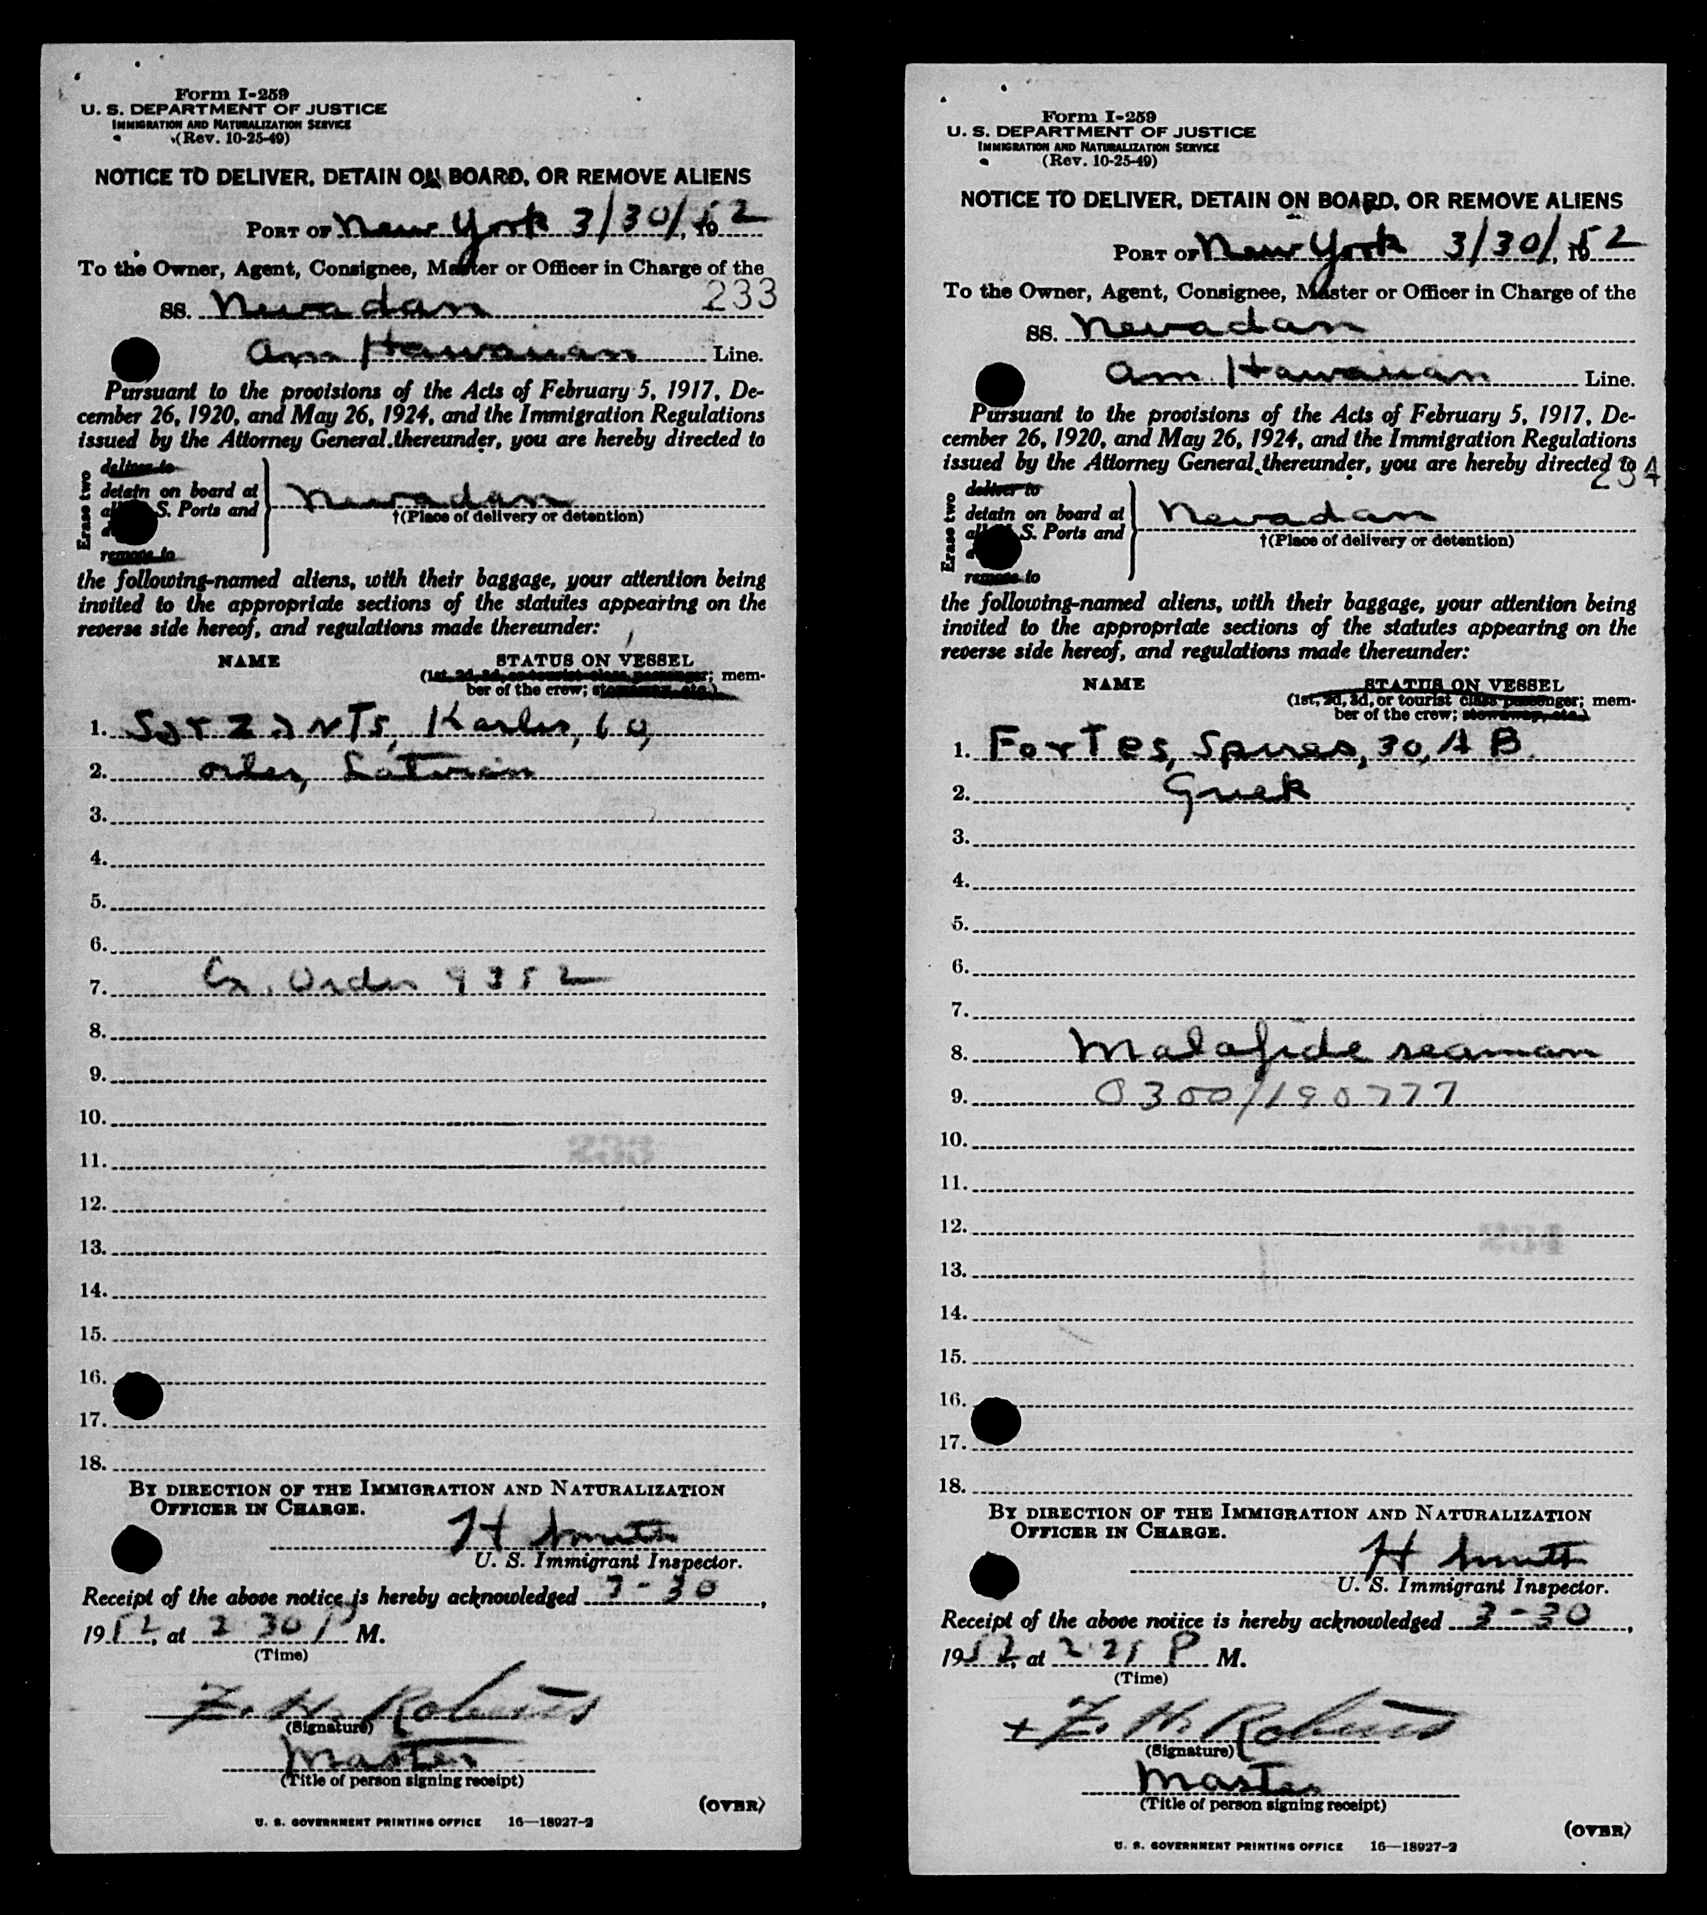 Form I-259
U. S. DEPARTMENT OF JUSTICE
IMMIGRATION AND NATURALIZATION SERVICE
(Rev. 10-25-49)
NOTICE TO DELIVER, DETAIN ON BOARD, OR REMOVE ALIENS
PORT OF New York 3/30/, 1952
To the Owner, Agent, Consignee, Master or Officer in Charge of the
233
SS. Nevadan
Am Hawaiian Line.
Pursuant to the provisions of the Acts of February 5, 1917, De-
cember 26, 1920, and May 26, 1924, and the Immigration Regulations
issued by the Attorney General thereunder, you are hereby directed to
Erase two
deliver to
detain on board at
S. Ports and
remove to
Nevadan
†(Place of delivery or detention)
the following-named aliens, with their baggage, your attention being
invited to the appropriate sections of the statutes appearing on the
reverse side hereof, and regulations made thereunder:
NAME STATUS ON VESSEL
(1st, 2d, 3d, or tourist class passenger; mem-
ber of the crew; stowaway, etc.)
1. Karlis, 60,
2. oiler, Latvian
3.
4.
5.
6.
7. Ex. Order 9352
8.
9.
10.
11.
12.
13.
14.
15.
16.
17.
18.
BY DIRECTION OF THE IMMIGRATION AND NATURALIZATION
OFFICER IN CHARGE.
H Smith
U. S. Immigrant Inspector.
Receipt of the above notice is hereby acknowledged 3-30,
1952, at 2 30 P M.
(Time)
F. H. Roberts
(Signature)
Master
(Title of person signing receipt)
(OVER)
U. S. GOVERNMENT PRINTING OFFICE 16—18927-2
Form I-259
U. S. DEPARTMENT OF JUSTICE
IMMIGRATION AND NATURALIZATION SERVICE
(Rev. 10-25-49)
NOTICE TO DELIVER, DETAIN ON BOARD, OR REMOVE ALIENS
PORT OF New York 3/30/, 1952
To the Owner, Agent, Consignee, Master or Officer in Charge of the
SS. Nevadan
Am Hawaiian Line.
Pursuant to the provisions of the Acts of February 5, 1917, De-
cember 26, 1920, and May 26, 1924, and the Immigration Regulations
issued by the Attorney General thereunder, you are hereby directed to
234
Erase two
deliver to
detain on board at
S. Ports and
remove to
Nevadan
†(Place of delivery or detention)
the following-named aliens, with their baggage, your attention being
invited to the appropriate sections of the statutes appearing on the
reverse side hereof, and regulations made thereunder:
NAME STATUS ON VESSEL
(1st, 2d, 3d, or tourist class passenger; mem-
ber of the crew; stowaway, etc.)
1. Fortes, Spiros, 30, A B.
2. Greek
3.
4.
5.
6.
7.
8. Malafide seaman
9. 0300/190777
10.
11.
12.
13.
14.
15.
16.
17.
18.
BY DIRECTION OF THE IMMIGRATION AND NATURALIZATION
OFFICER IN CHARGE.
H Smith
U. S. Immigrant Inspector.
Receipt of the above notice is hereby acknowledged 3-30,
1952, at 2 25 P M.
(Time)
+ F. H. Roberts
(Signature)
Master
(Title of person signing receipt)
(OVER)
U. S. GOVERNMENT PRINTING OFFICE 16—18927-2